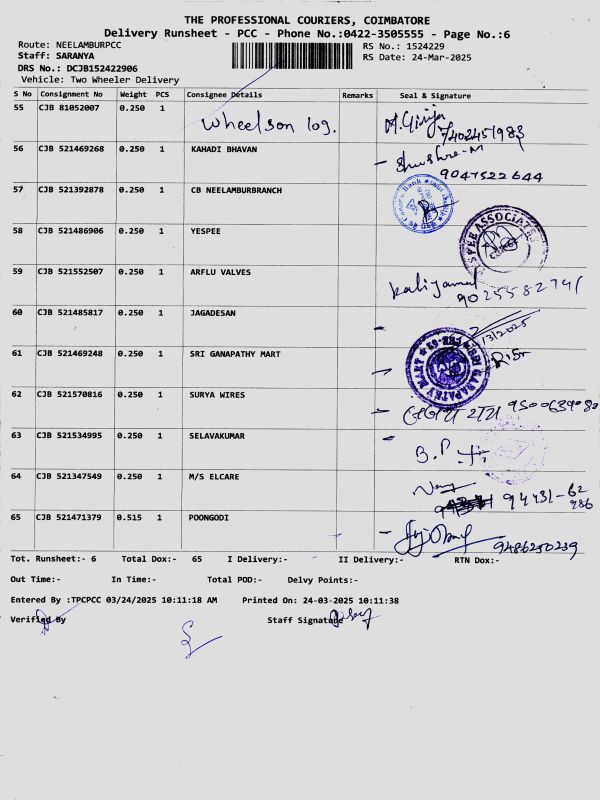 THE PROFESSIONAL COURIERS, COIMBATORE
Delivery Runsheet - PCC - Phone No.:0422-3505555 - Page No.:6
Route: NEELAMBURPCC
RS No.: 1524229
Staff: SARANYA
RS Date: 24-Mar-2025
DRS No.: DCJB152422906
Vehicle: Two Wheeler Delivery
S No Consignment No Weight PCS Consignee Details Remarks Seal & Signature
55 CJB 81052007 0.250 1 Wheelson log. 7402451983
56 CJB 521469268 0.250 1 KAHADI BHAVAN 9047522644
57 CJB 521392878 0.250 1 CB NEELAMBURBRANCH
58 CJB 521486906 0.250 1 YESPEE
59 CJB 521552507 0.250 1 ARFLU VALVES
60 CJB 521485817 0.250 1 JAGADESAN
61 CJB 521469248 0.250 1 SRI GANAPATHY MART
62 CJB 521570816 0.250 1 SURYA WIRES
63 CJB 521534995 0.250 1 SELAVAKUMAR
64 CJB 521347549 0.250 1 M/S ELCARE
65 CJB 521471379 0.515 1 POONGODI 9486250239
Tot. Runsheet:- 6 Total Dox:- 65 I Delivery:- II Delivery:- RTN Dox:-
Out Time:- In Time:- Total POD:- Delvy Points:-
Entered By :TPCPCC 03/24/2025 10:11:18 AM Printed On: 24-03-2025 10:11:38
Verified By Staff Signature